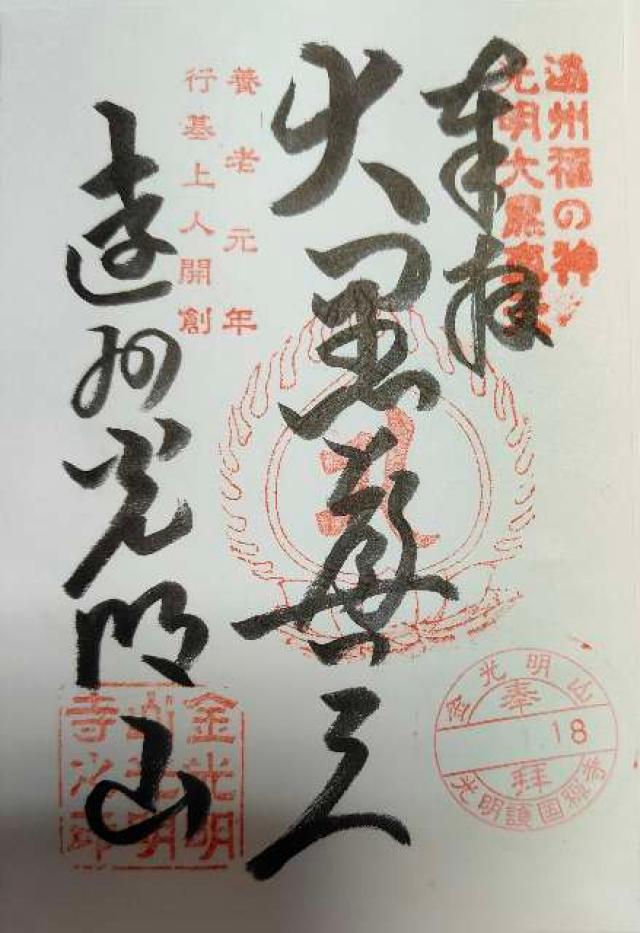 遠州福の神
光明大黒真天
奉拝
大黒尊天
養老元年
行基上人開創
遠州光明山
金光明
山光明
寺之印
金光明山
奉
18
拝
光明護国